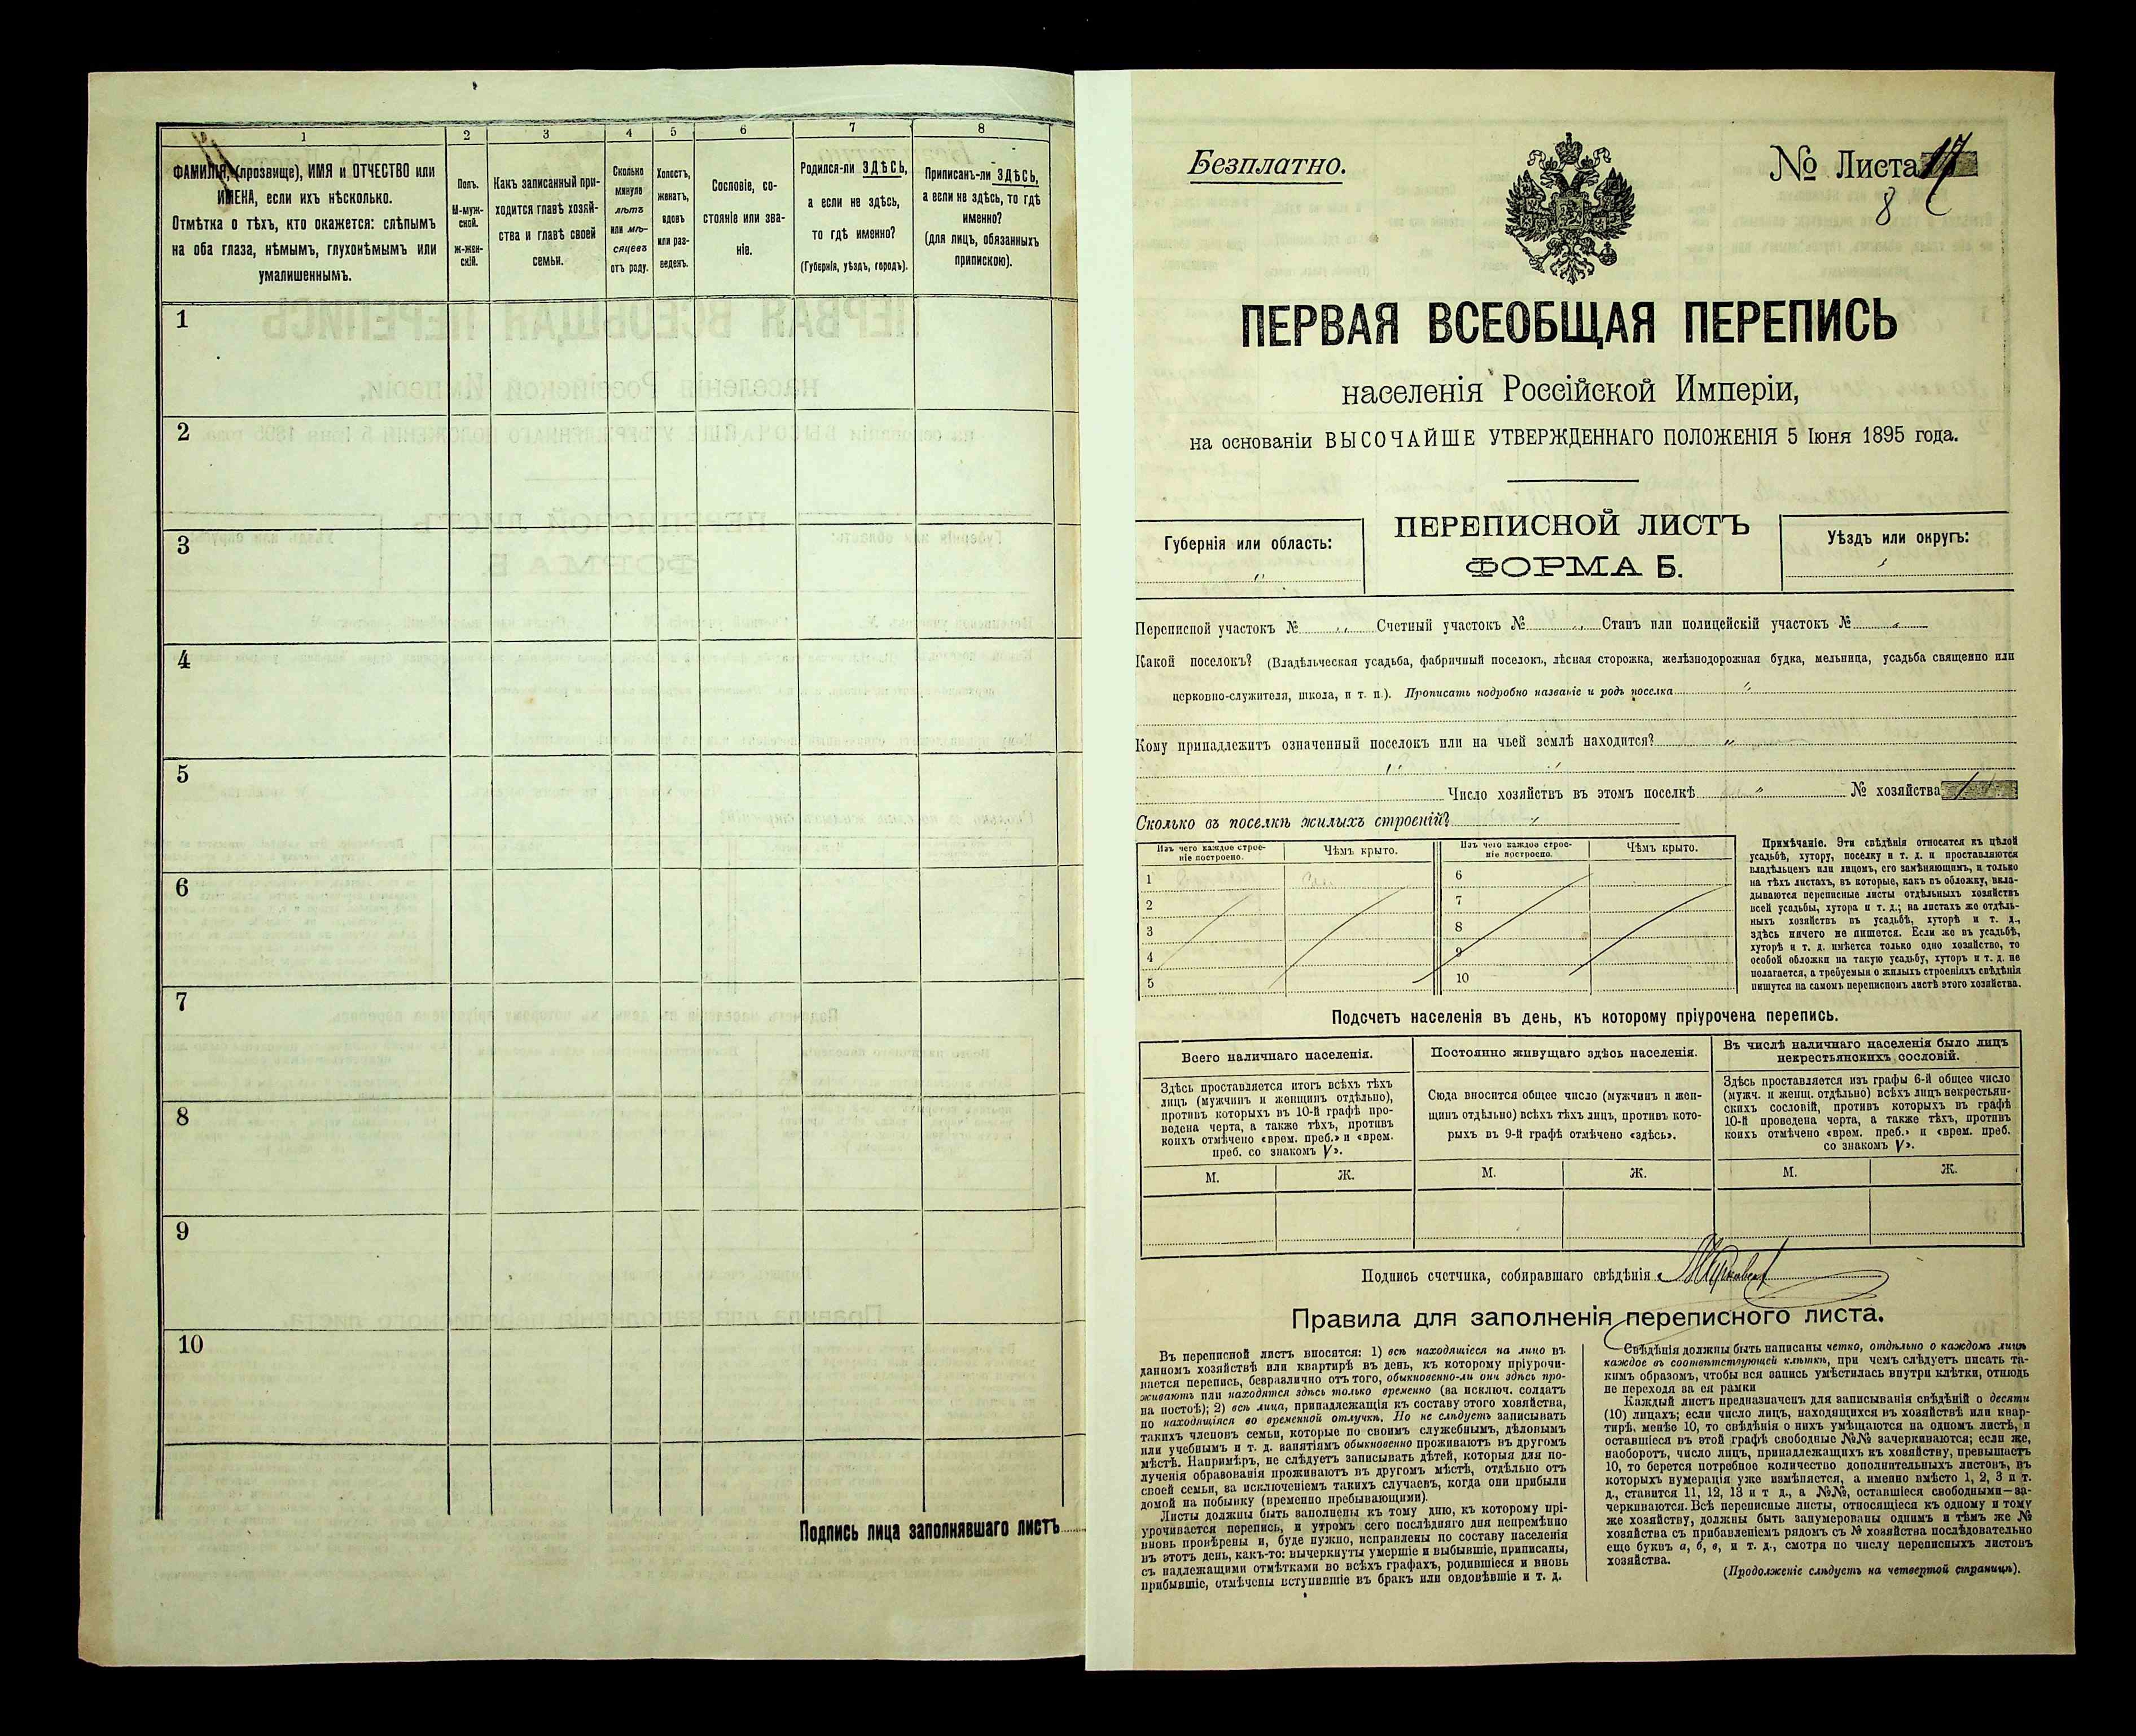 1 2 3 4 5 6 7 8
ФАМИЛІЯ, (прозвище), ИМЯ и ОТЧЕСТВО или
ИМЕНА, если ихъ нѣсколько.
Отмѣтка о тѣхъ, кто окажется: слѣпымъ
на оба глаза, нѣмымъ, глухонѣмымъ или
умалишеннымъ.
Полъ.
М-муж-
ской.
ж-жен-
скій.
Какъ записанный при-
ходится главѣ хозяй-
ства и главѣ своей
семьи.
Сколько
минуло
лѣтъ
или мѣ-
сяцевъ
отъ роду.
Холостъ,
женатъ,
вдовъ
или раз-
веденъ.
Сословіе, со-
стояніе или зва-
ніе.
Родился-ли ЗДѢСЬ,
а если не здѣсь,
то гдѣ именно?
(Губернія, уѣздъ, городъ).
Приписанъ-ли ЗДѢСЬ,
а если не здѣсь, то гдѣ
именно?
(для лицъ, обязанныхъ
припискою).
1
2
3
4
5
6
7
8
9
10
Подпись лица заполнявшаго листъ
Безплатно.
№ Листа 17
8
ПЕРВАЯ ВСЕОБЩАЯ ПЕРЕПИСЬ
населенія Россійской Имперіи,
на основаніи ВЫСОЧАЙШЕ УТВЕРЖДЕННАГО ПОЛОЖЕНІЯ 5 Іюня 1895 года.
Губернія или область:
ПЕРЕПИСНОЙ ЛИСТЪ
ФОРМА Б.
Уѣздъ или округъ:
Переписной участокъ № „ Счетный участокъ № „ Станъ или полицейскій участокъ № „
Какой поселокъ? (Владѣльческая усадьба, фабричный поселокъ, лѣсная сторожка, желѣзнодорожная будка, мельница, усадьба священно или
церковно-служителя, школа, и т. п.). Прописать подробно названіе и родъ поселка „
Кому принадлежитъ означенный поселокъ или на чьей землѣ находится? „
Число хозяйствъ въ этомъ поселкѣ „ № хозяйства
Сколько въ поселкѣ жилыхъ строеній? „
Изъ чего каждое строе-
ніе построено.
Чѣмъ крыто.
Изъ чего каждое строе-
ніе построено.
Чѣмъ крыто.
1
2
3
4
5
6
7
8
9
10
Примѣчаніе. Эти свѣдѣнія относятся къ цѣлой
усадьбѣ, хутору, поселку и т. д. и проставляются
владѣльцемъ или лицомъ, его замѣняющимъ, и только
на тѣхъ листахъ, въ которые, какъ въ обложку, вкла-
дываются переписные листы отдѣльныхъ хозяйствъ
всей усадьбы, хутора и т. д.; на листахъ же отдѣль-
ныхъ хозяйствъ въ усадьбѣ, хуторѣ и т. д.,
здѣсь ничего не пишется. Если же въ усадьбѣ,
хуторѣ и т. д. имѣется только одно хозяйство, то
особой обложки на такую усадьбу, хуторъ и т. д. не
полагается, а требуемыя о жилыхъ строеніяхъ свѣдѣнія
пишутся на самомъ переписномъ листѣ этого хозяйства.
Подсчетъ населенія въ день, къ которому пріурочена перепись.
Всего наличнаго населенія.
Здѣсь проставляется итогъ всѣхъ тѣхъ
лицъ (мужчинъ и женщинъ отдѣльно),
противъ которыхъ въ 10-й графѣ про-
ведена черта, а также тѣхъ, противъ
коихъ отмѣчено «врем. преб.» и «врем.
преб. со знакомъ V».
Постоянно живущаго здѣсь населенія.
Сюда вносится общее число (мужчинъ и жен-
щинъ отдѣльно) всѣхъ тѣхъ лицъ, противъ кото-
рыхъ въ 9-й графѣ отмѣчено «здѣсь».
Въ числѣ наличнаго населенія было лицъ
некрестьянскихъ сословій.
Здѣсь проставляется изъ графы 6-й общее число
(мужч. и женщ. отдѣльно) всѣхъ лицъ некрестьян-
скихъ сословій, противъ которыхъ въ графѣ
10-й проведена черта, а также тѣхъ, противъ
коихъ отмѣчено «врем. преб.» и «врем. преб.
со знакомъ V».
М. Ж. М. Ж. М. Ж.
Подпись счетчика, собиравшаго свѣдѣнія
Правила для заполненія переписного листа.
Въ переписной листъ вносятся: 1) всѣ находящіеся на лицо въ
данномъ хозяйствѣ или квартирѣ въ день, къ которому пріурочи-
вается перепись, безразлично отъ того, обыкновенно-ли они здѣсь про-
живаютъ или находятся здѣсь только временно (за исключ. солдатъ
на постоѣ); 2) всѣ лица, принадлежащія къ составу этого хозяйства,
но находящіяся во временной отлучкѣ. Но не слѣдуетъ записывать
такихъ членовъ семьи, которые по своимъ служебнымъ, дѣловымъ
или учебнымъ и т. д. занятіямъ обыкновенно проживаютъ въ другомъ
мѣстѣ. Напримѣръ, не слѣдуетъ записывать дѣтей, которыя для по-
лученія образованія проживаютъ въ другомъ мѣстѣ, отдѣльно отъ
своей семьи, за исключеніемъ такихъ случаевъ, когда они прибыли
домой на побывку (временно пребывающими).
Листы должны быть заполнены къ тому дню, къ которому прі-
урочивается перепись, и утромъ сего послѣдняго дня непремѣнно
вновь провѣрены и, буде нужно, исправлены по составу населенія
въ этотъ день, какъ-то: вычеркнуты умершіе и выбывшіе, приписаны,
съ надлежащими отмѣтками во всѣхъ графахъ, родившіеся и вновь
прибывшіе, отмѣчены вступившіе въ бракъ или овдовѣвшіе и т. д.
Свѣдѣнія должны быть написаны четко, отдѣльно о каждомъ лицѣ
каждое въ соотвѣтствующей клѣткѣ, при чемъ слѣдуетъ писать та-
кимъ образомъ, чтобы вся запись умѣстилась внутри клѣтки, отнюдь
не переходя за ея рамки
Каждый листъ предназначенъ для записыванія свѣдѣній о десяти
(10) лицахъ; если число лицъ, находящихся въ хозяйствѣ или квар-
тирѣ, менѣе 10, то свѣдѣнія о нихъ умѣщаются на одномъ листѣ, и
оставшіеся въ этой графѣ свободные №№ зачеркиваются; если же,
наоборотъ, число лицъ, принадлежащихъ къ хозяйству, превышаетъ
10, то берется потребное количество дополнительныхъ листовъ, въ
которыхъ нумерація уже измѣняется, а именно вмѣсто 1, 2, 3 и т.
д., ставится 11, 12, 13 и т д., а №№, оставшіеся свободными—за-
черкиваются. Всѣ переписные листы, относящіеся къ одному и тому
же хозяйству, должны быть занумерованы однимъ и тѣмъ же №
хозяйства съ прибавленіемъ рядомъ съ № хозяйства послѣдовательно
еще буквъ а, б, в, и т. д., смотря по числу переписныхъ листовъ
хозяйства.
(Продолженіе слѣдуетъ на четвертой страницѣ).